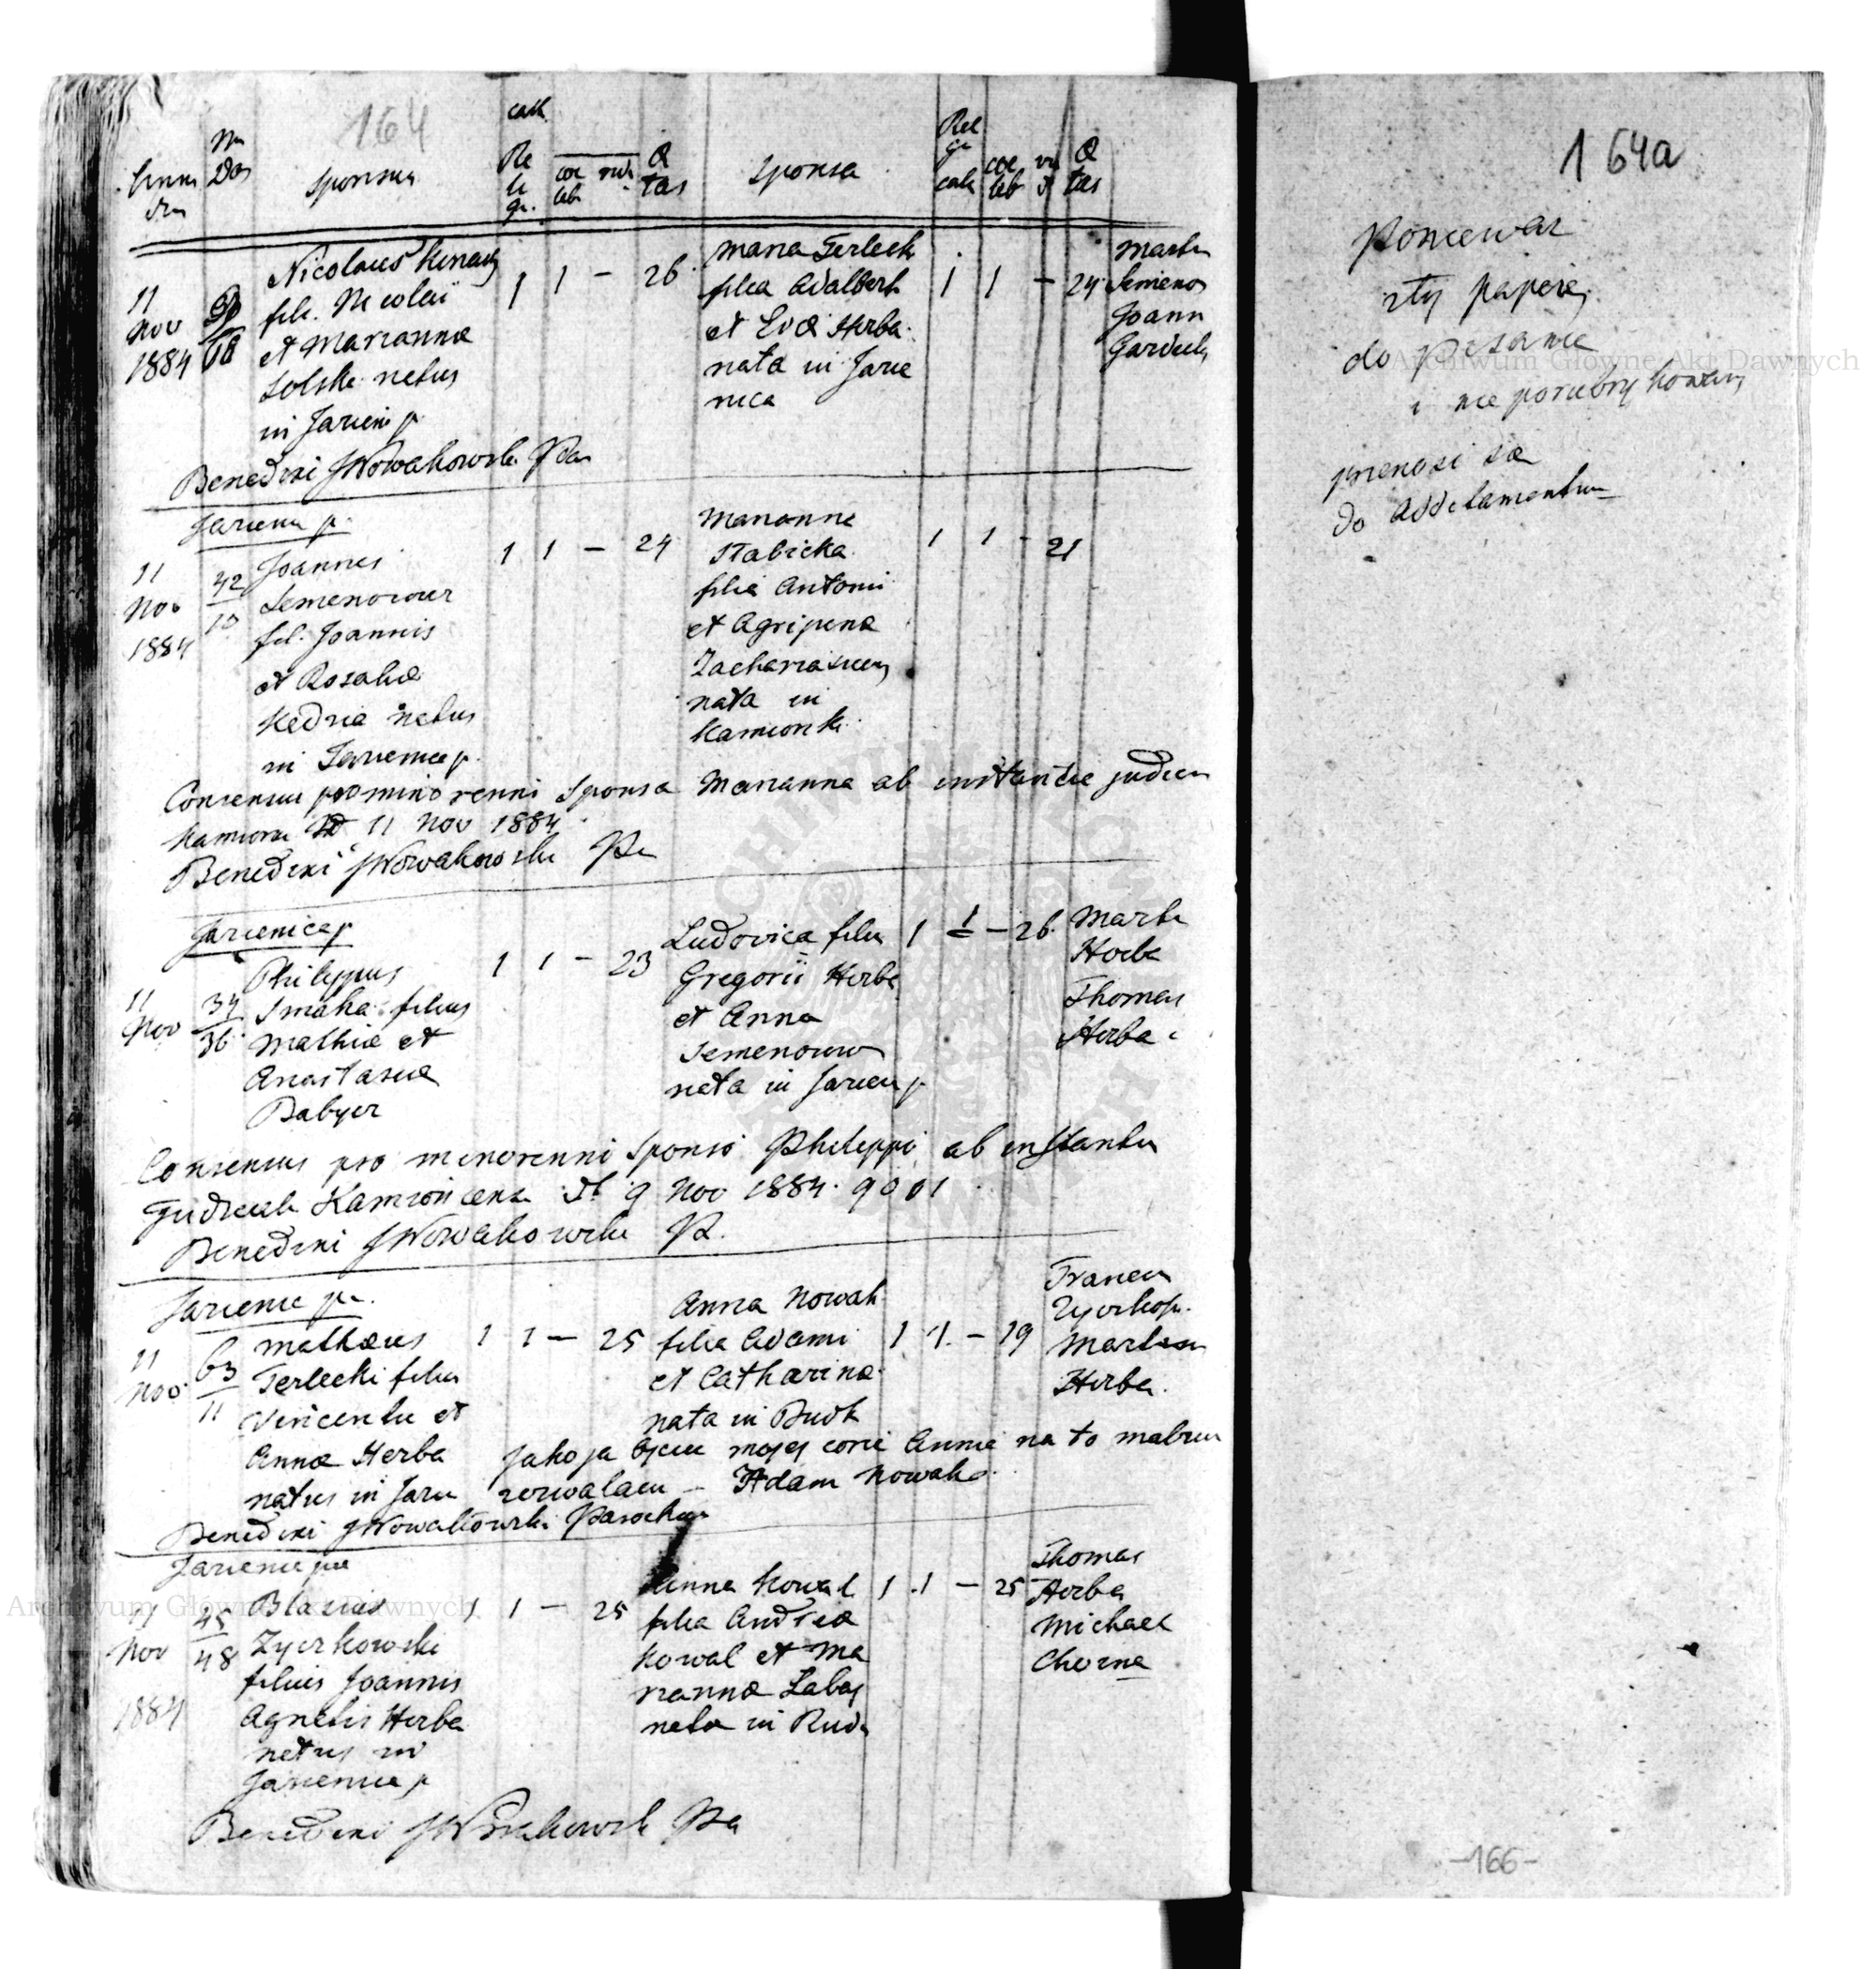 164
Annus Dies
Nr Dos
Sponsus
cath
Re li gi.
coe leb
vid
Æ tas
Sponsa
Rel gi cath
coe leb
vi d
Æ tas
11 Nov 1884
Nicolaus
fili. Nicolai
et Mariannæ
Solska natus
in Jarieni p
1 1 - 26
Maria Terleck
filia Adalbert
et Evæ Herba
nata in Jarie
nica
1 1 - 24
Martin
Semenow
Joann
Benedini JNowakowski Par
Jarieni p.
11 Nov 1884
42
10
Joannes
Semenowicz
fil. Joannis
et Rosaliæ
Kedria natus
in Jarienica p.
1 1 - 24
Marianna
Stabicka
filia Antoni
et Agripena
Zachariasiewi
nata in
Kamionk.
1 1 - 21
Consensu pro minorenni Sponsa Marianna ab instantie judicu
Kamion 11 Nov 1884
Benedini JNowakowski Pa
Jarienica p
11 Nov
34
36
Philippus
Smaha filius
Mathiæ et
Anastasiæ
Babyer
1 1 - 23
Ludovica filia
Gregorii Herba
et Anna
Semenowi
nata in Jarien p
1 1 - 26
Martin
Herba
Thomas
Herba
Consensus pro minorenni Sponso Philippi ab instantia
Judicial Kamionicens dt 9 Nov 1884. 9001
Benedini JNowakowski Pa.
Jarienic pa.
11 Nov
63
11
Mathæus
Terlecki filius
Vincentii et
Annæ Herba
natus in Jarie
1 1 - 25
Anna Nowak
filia Adami
et Catharinæ
nata in Budk
1 1 - 19
Francis
Zyorkow.
Martin
Herba.
Jako ja Ojciec mojej corie Annie na to malzen
zezwalam - Adam Nowak
Benedini JNowakowski Parochus
Jarienic pa
11 Nov 1884
45
48
Blasius
Zyorkowski
filius Joannis
Agnetis Herba
natus in
Jarienica p
1 1 - 25
Anna Kowal
filia Andreæ
Kowal et Ma
riannæ Labaj
nata in Ruda
1 1 - 25
Thomas
Herba
Michael
Chorna
Benedini JNowakowski Pa
164a
Poniewaz
zly papier
do pisania
i nie porubrykowany
prenosi sæ
do Additamentum
-166-
Archiwum Główne Akt Dawnych
Archiwum Główne Akt Dawnych